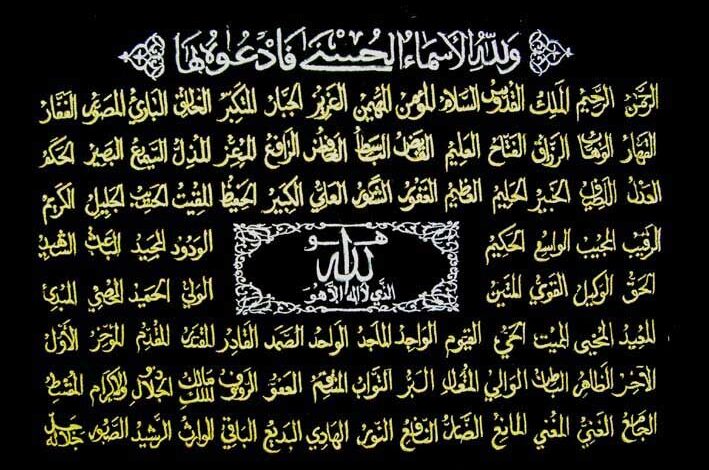 ولله الأسماء الحسنى فادعوه بها
الرحمن الرحيم الملك القدوس السلام المؤمن المهيمن العزيز الجبار المتكبر الخالق البارئ المصور الغفار
القهار الوهاب الرزاق الفتاح العليم القابض الباسط الخافض الرافع المعز المذل السميع البصير الحكم
العدل اللطيف الخبير الحليم العظيم الغفور الشكور العلي الكبير الحفيظ المقيت الحسيب الجليل الكريم
الرقيب المجيب الواسع الحكيم
الودود المجيد الباعث الشهيد
الحق الوكيل القوي المتين
الولي الحميد المحصي المبدئ
هو
الله
الذي لا اله الا هو
المعيد المحيي المميت الحي القيوم الواجد الماجد الواحد الصمد القادر المقتدر المقدم المؤخر الأول
الآخر الظاهر الباطن الوالي المتعال البر التواب المنتقم العفو الرؤوف مالك الملك ذو الجلال والإكرام المقسط
الجامع الغني المغني المانع الضار النافع النور الهادي البديع الباقي الوارث الرشيد الصبور جل جلاله